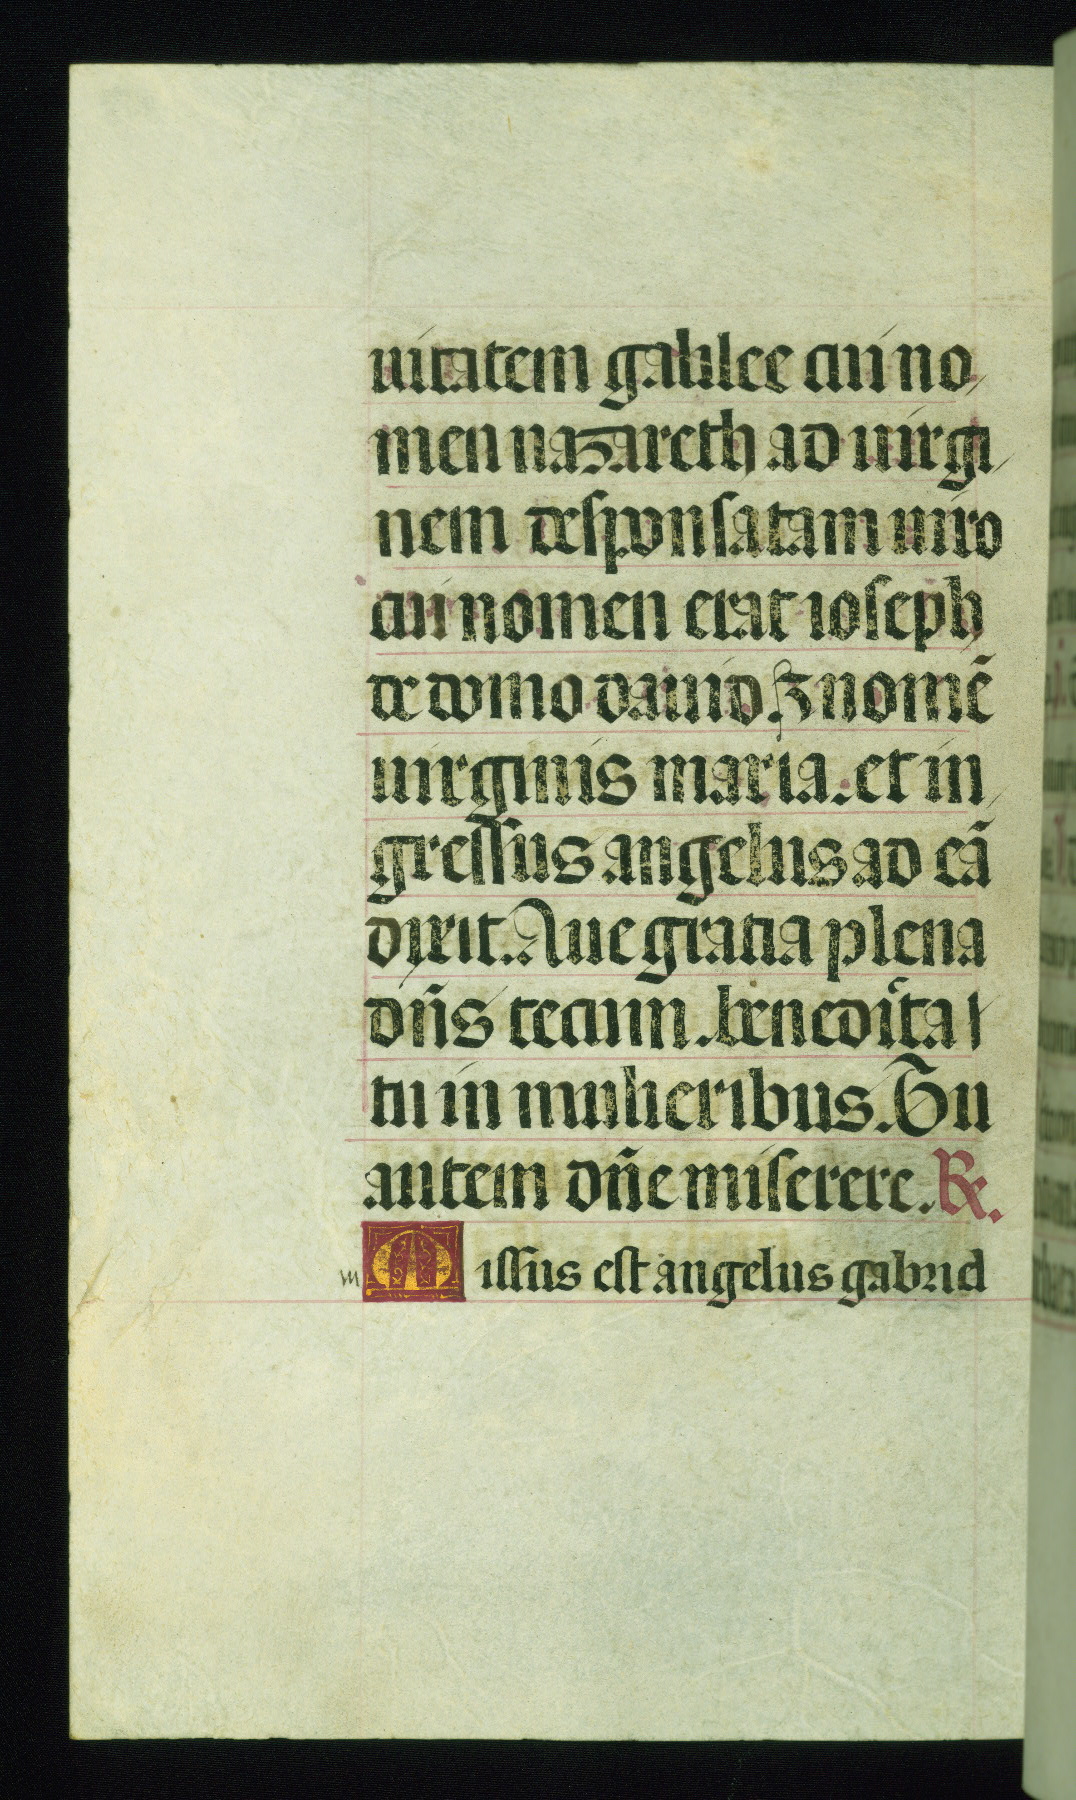 uitatem galilee cui no,
men nazareth ad uirgi,
nem desponsatam uiro
cui nomen erat ioseph
de domo dauid. ⁊ nomē
uirginis maria. et in,
gressus angelus ad eā
dixit. Aue gratia plena
dn̄s tecum. benedīta
tu in mulieribus. Tu
autem dn̄e miserere. ℟.
m Missus est angelus gabriel